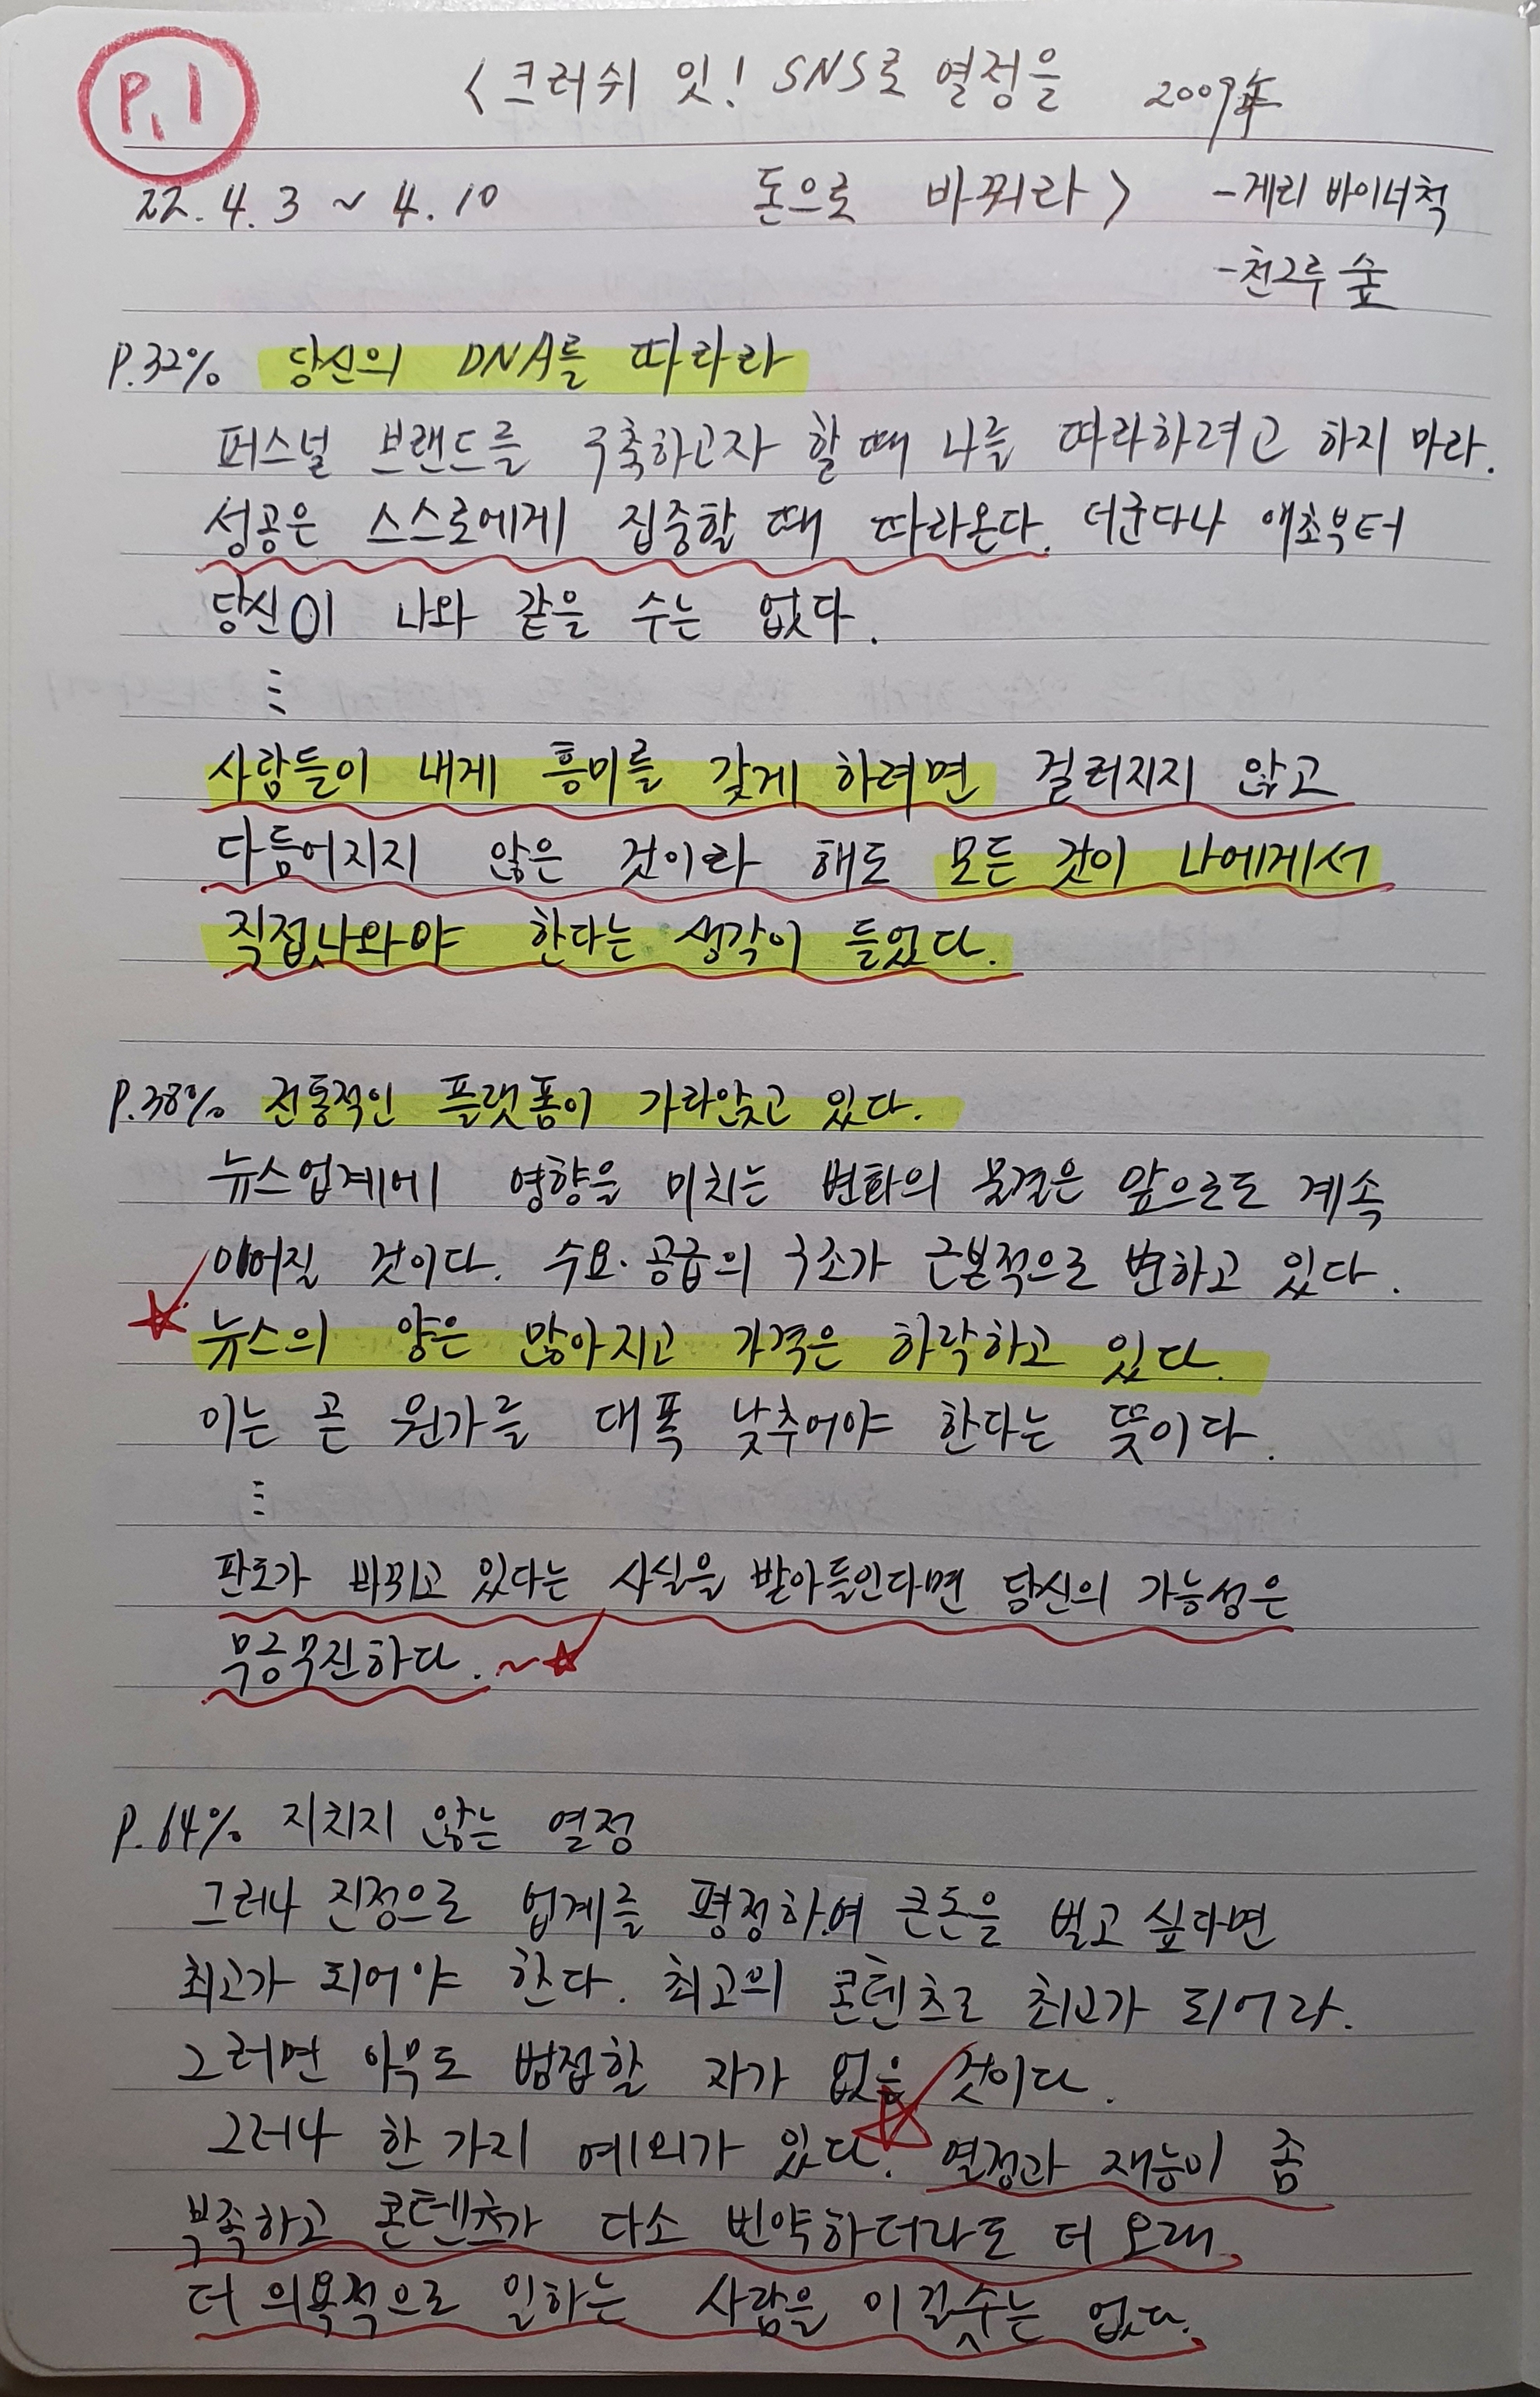 P.1
<크러쉬 잇! SNS로 열정을 2009年
22.4.3 ~ 4.10 돈으로 바꿔라> -게리 바이너척
-천그루 숲
P.32% 당신의 DNA를 따라라
퍼스널 브랜드를 구축하고자 할 때 나를 따라하려고 하지 마라.
성공은 스스로에게 집중할 때 따라온다. 더군다나 애초부터
당신이 나와 같을 수는 없다.
⋮
사람들이 내게 흥미를 갖게 하려면 걸러지지 않고
다듬어지지 않은 것이라 해도 모든 것이 나에게서
직접 나와야 한다는 생각이 들었다.
P.38% 전통적인 플랫폼이 가라앉고 있다.
뉴스업계에 영향을 미치는 변화의 물결은 앞으로도 계속
이어질 것이다. 수요·공급의 구조가 근본적으로 변하고 있다.
뉴스의 양은 많아지고 가격은 하락하고 있다.
이는 곧 원가를 대폭 낮추어야 한다는 뜻이다.
⋮
판도가 바뀌고 있다는 사실을 받아들인다면 당신의 가능성은
무궁무진하다. ~☆
P.64% 지치지 않는 열정
그러나 진정으로 업계를 평정하여 큰돈을 벌고 싶다면
최고가 되어야 한다. 최고의 콘텐츠로 최고가 되어라.
그러면 아무도 범접할 자가 없을 것이다.
그러나 한 가지 예외가 있다. 열정과 재능이 좀
부족하고 콘텐츠가 다소 빈약하더라도 더 오래,
더 의욕적으로 일하는 사람을 이길 수는 없다.